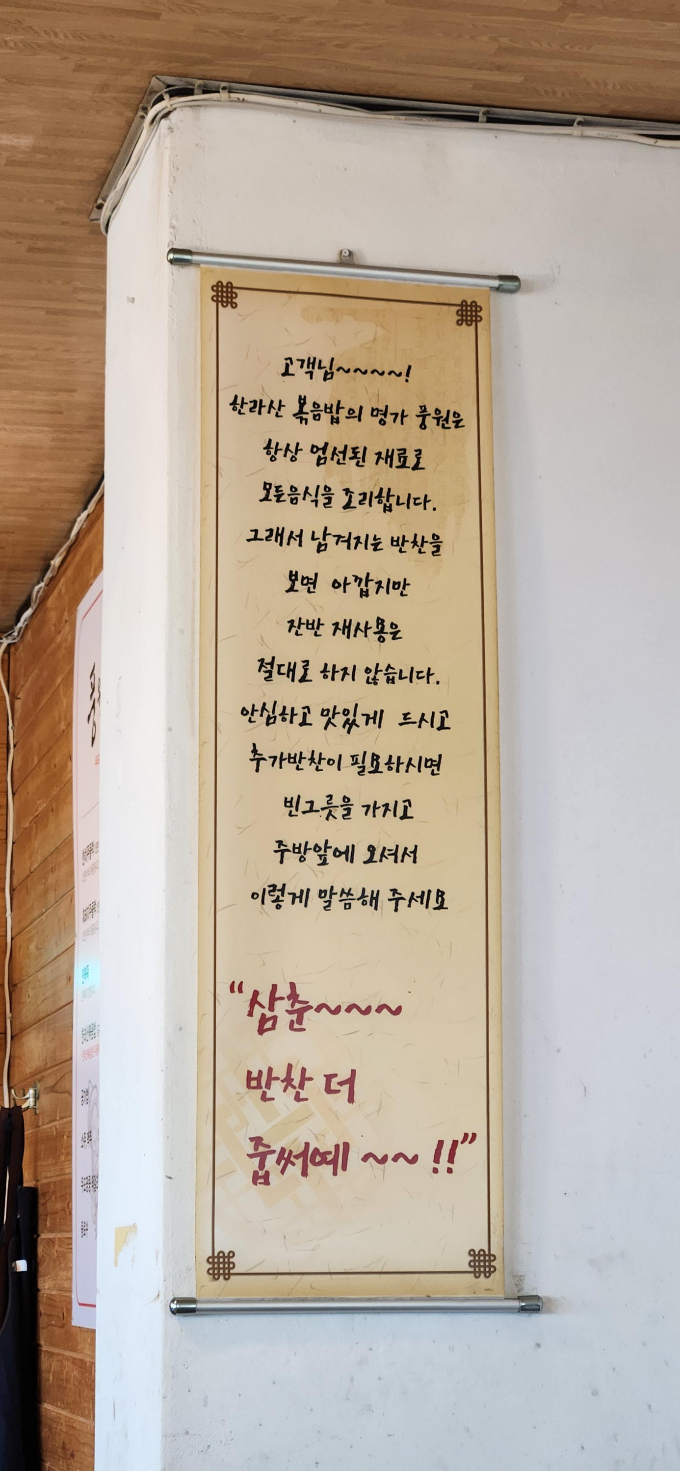 고객님~~~~!
한라산 볶음밥의 명가 풍원은
항상 엄선된 재료로
모든음식을 조리합니다.
그래서 남겨지는 반찬을
보면 아깝지만
잔반 재사용은
절대로 하지 않습니다.
안심하고 맛있게 드시고
추가반찬이 필요하시면
빈그릇을 가지고
주방앞에 오셔서
이렇게 말씀해 주세요
"삼춘~~~
반찬 더
줍써예~~!!"
공기밥
음료수